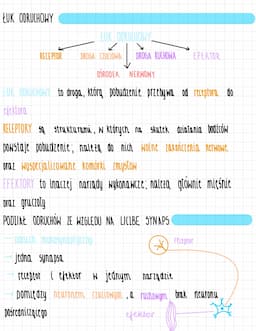 ŁUK ODRUCHOWY
ŁUK ODRUCHOWY
RECEPTOR DROGA CZUCIOWA DROGA RUCHOWA EFEKTOR
OŚRODEK NERWOWY
ŁUK ODRUCHOWY to droga, którą pobudzenie przebywa od receptora do
efektora
RECEPTORY są strukturami, w których na skutek działania bodźców
powstaje pobudzenie, należą do nich wolne zakończenia nerwowe
oraz wyspecjalizowane komórki zmysłów
EFEKTORY to inaczej narządy wykonawcze, należą głównie mięśnie
oraz gruczoły
PODZIAŁ ODRUCHÓW ZE WZGLĘDU NA LICZBĘ SYNAPS
→ odruch monosynaptyczny
→ jedna synapsa
→ receptor i efektor w jednym narządzie
→ pomiędzy neuronem czuciowym, a ruchowym brak neuronu
pośredniczącego
receptor
efektor